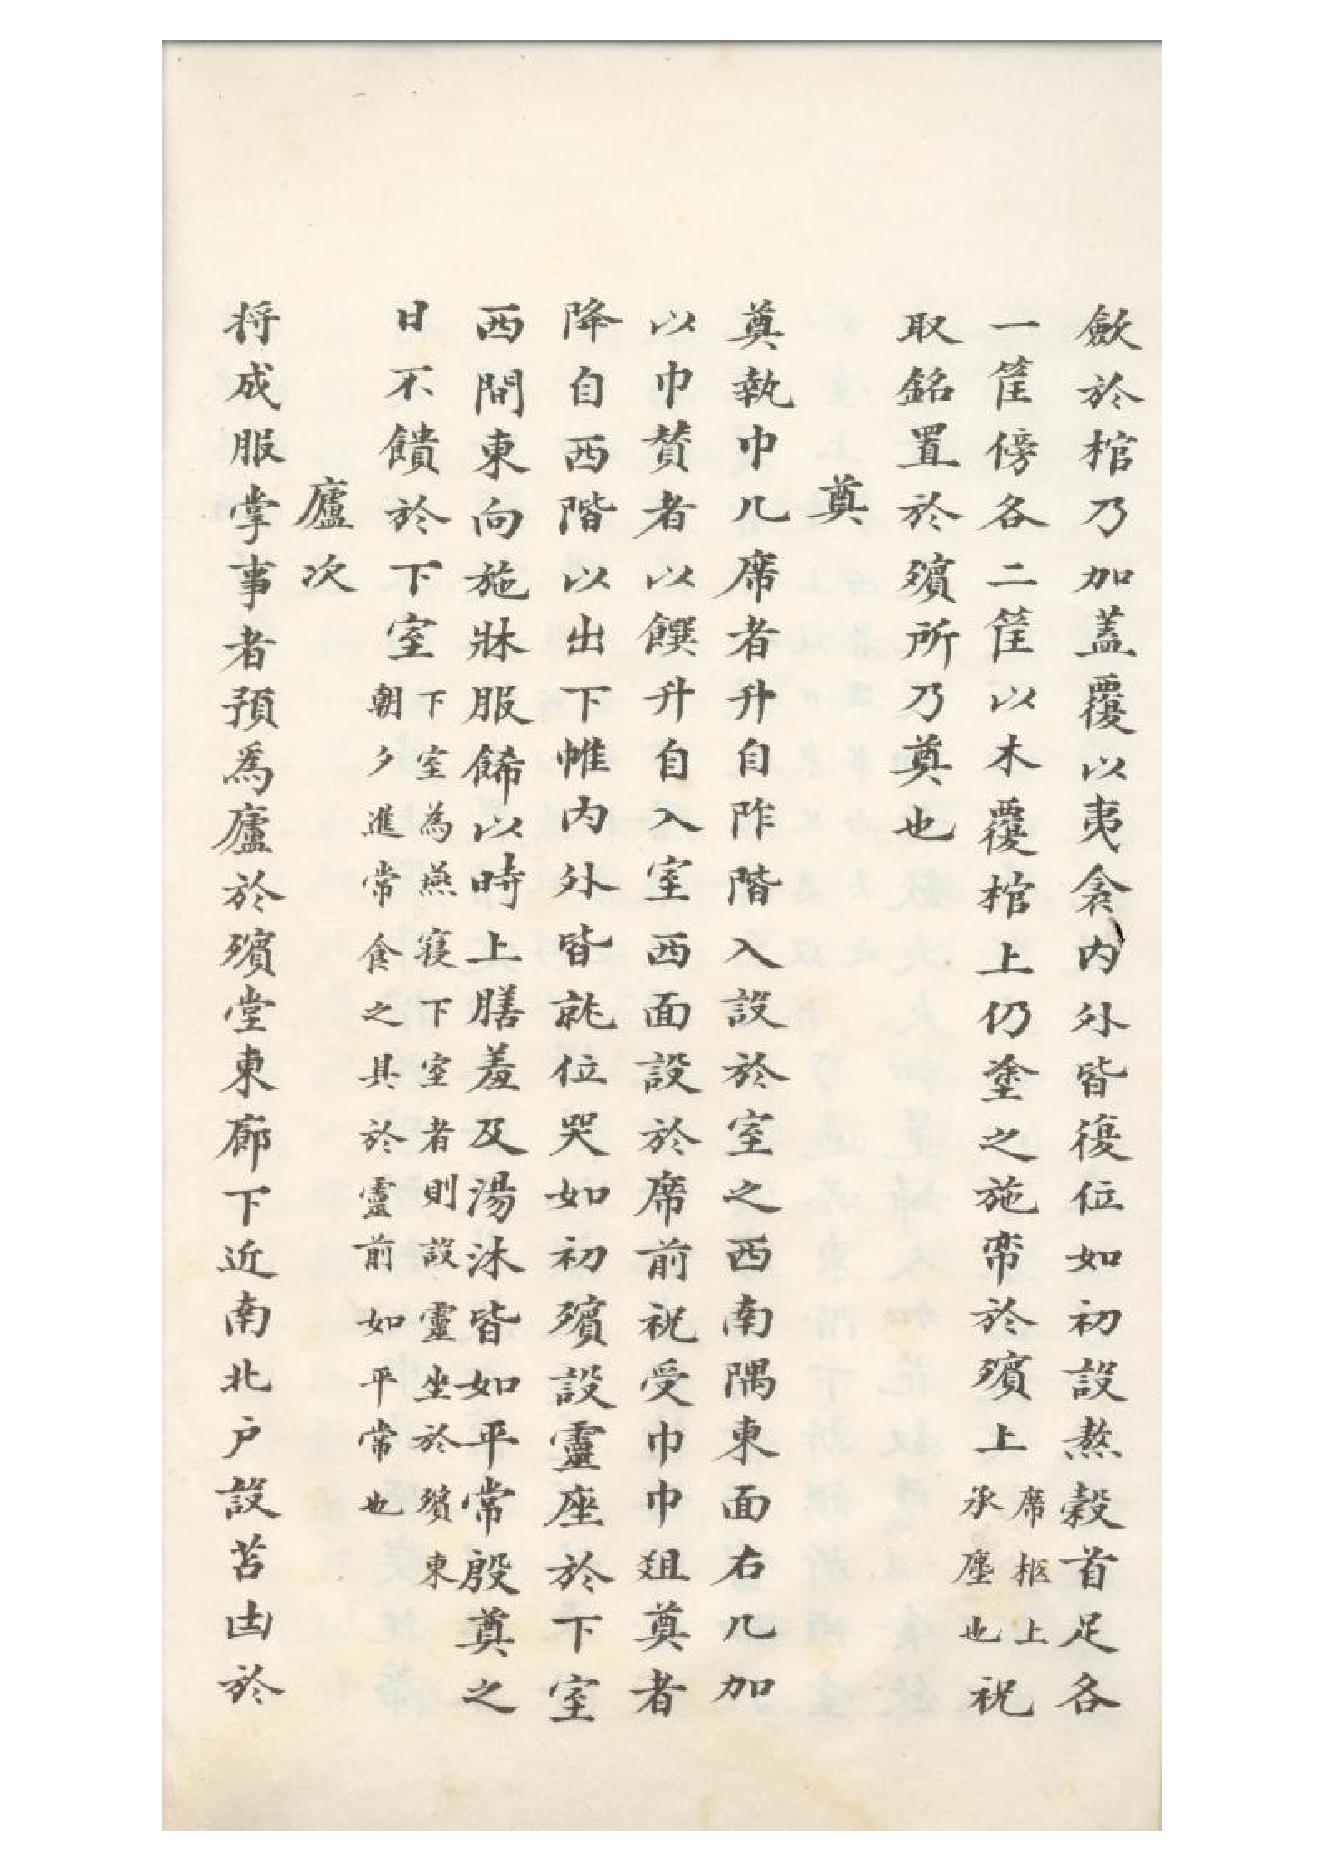 歛於棺乃加蓋覆以夷衾内外皆復位如初設熬穀首足各
一筐傍各二筐以木覆棺上仍塗之施帟於殯上席柩上承塵也祝
取銘置於殯所乃奠也
奠
奠執巾几席者升自阼階入設於室之西南隅東面右几加
以巾賛者以饌升自入室西面設於席前祝受巾巾爼奠者
降自西階以出下帷内外皆就位哭如初殯設靈座於下室
西間東向施牀服餙以時上膳羞及湯沐皆如平常殷奠之
日不饋於下室下室為燕寝下室者則設靈坐於殯東朝夕進常食之具於靈前如平常也
廬次
将成服掌事者預爲廬於殯堂東廊下近南北户設苫凷於